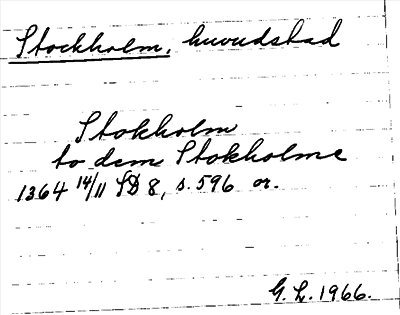 Stockholm, huvudstad
Stokholm
to dem Stokholme
1364 14/11 SD 8, s. 596 or.
G. L. 1966.